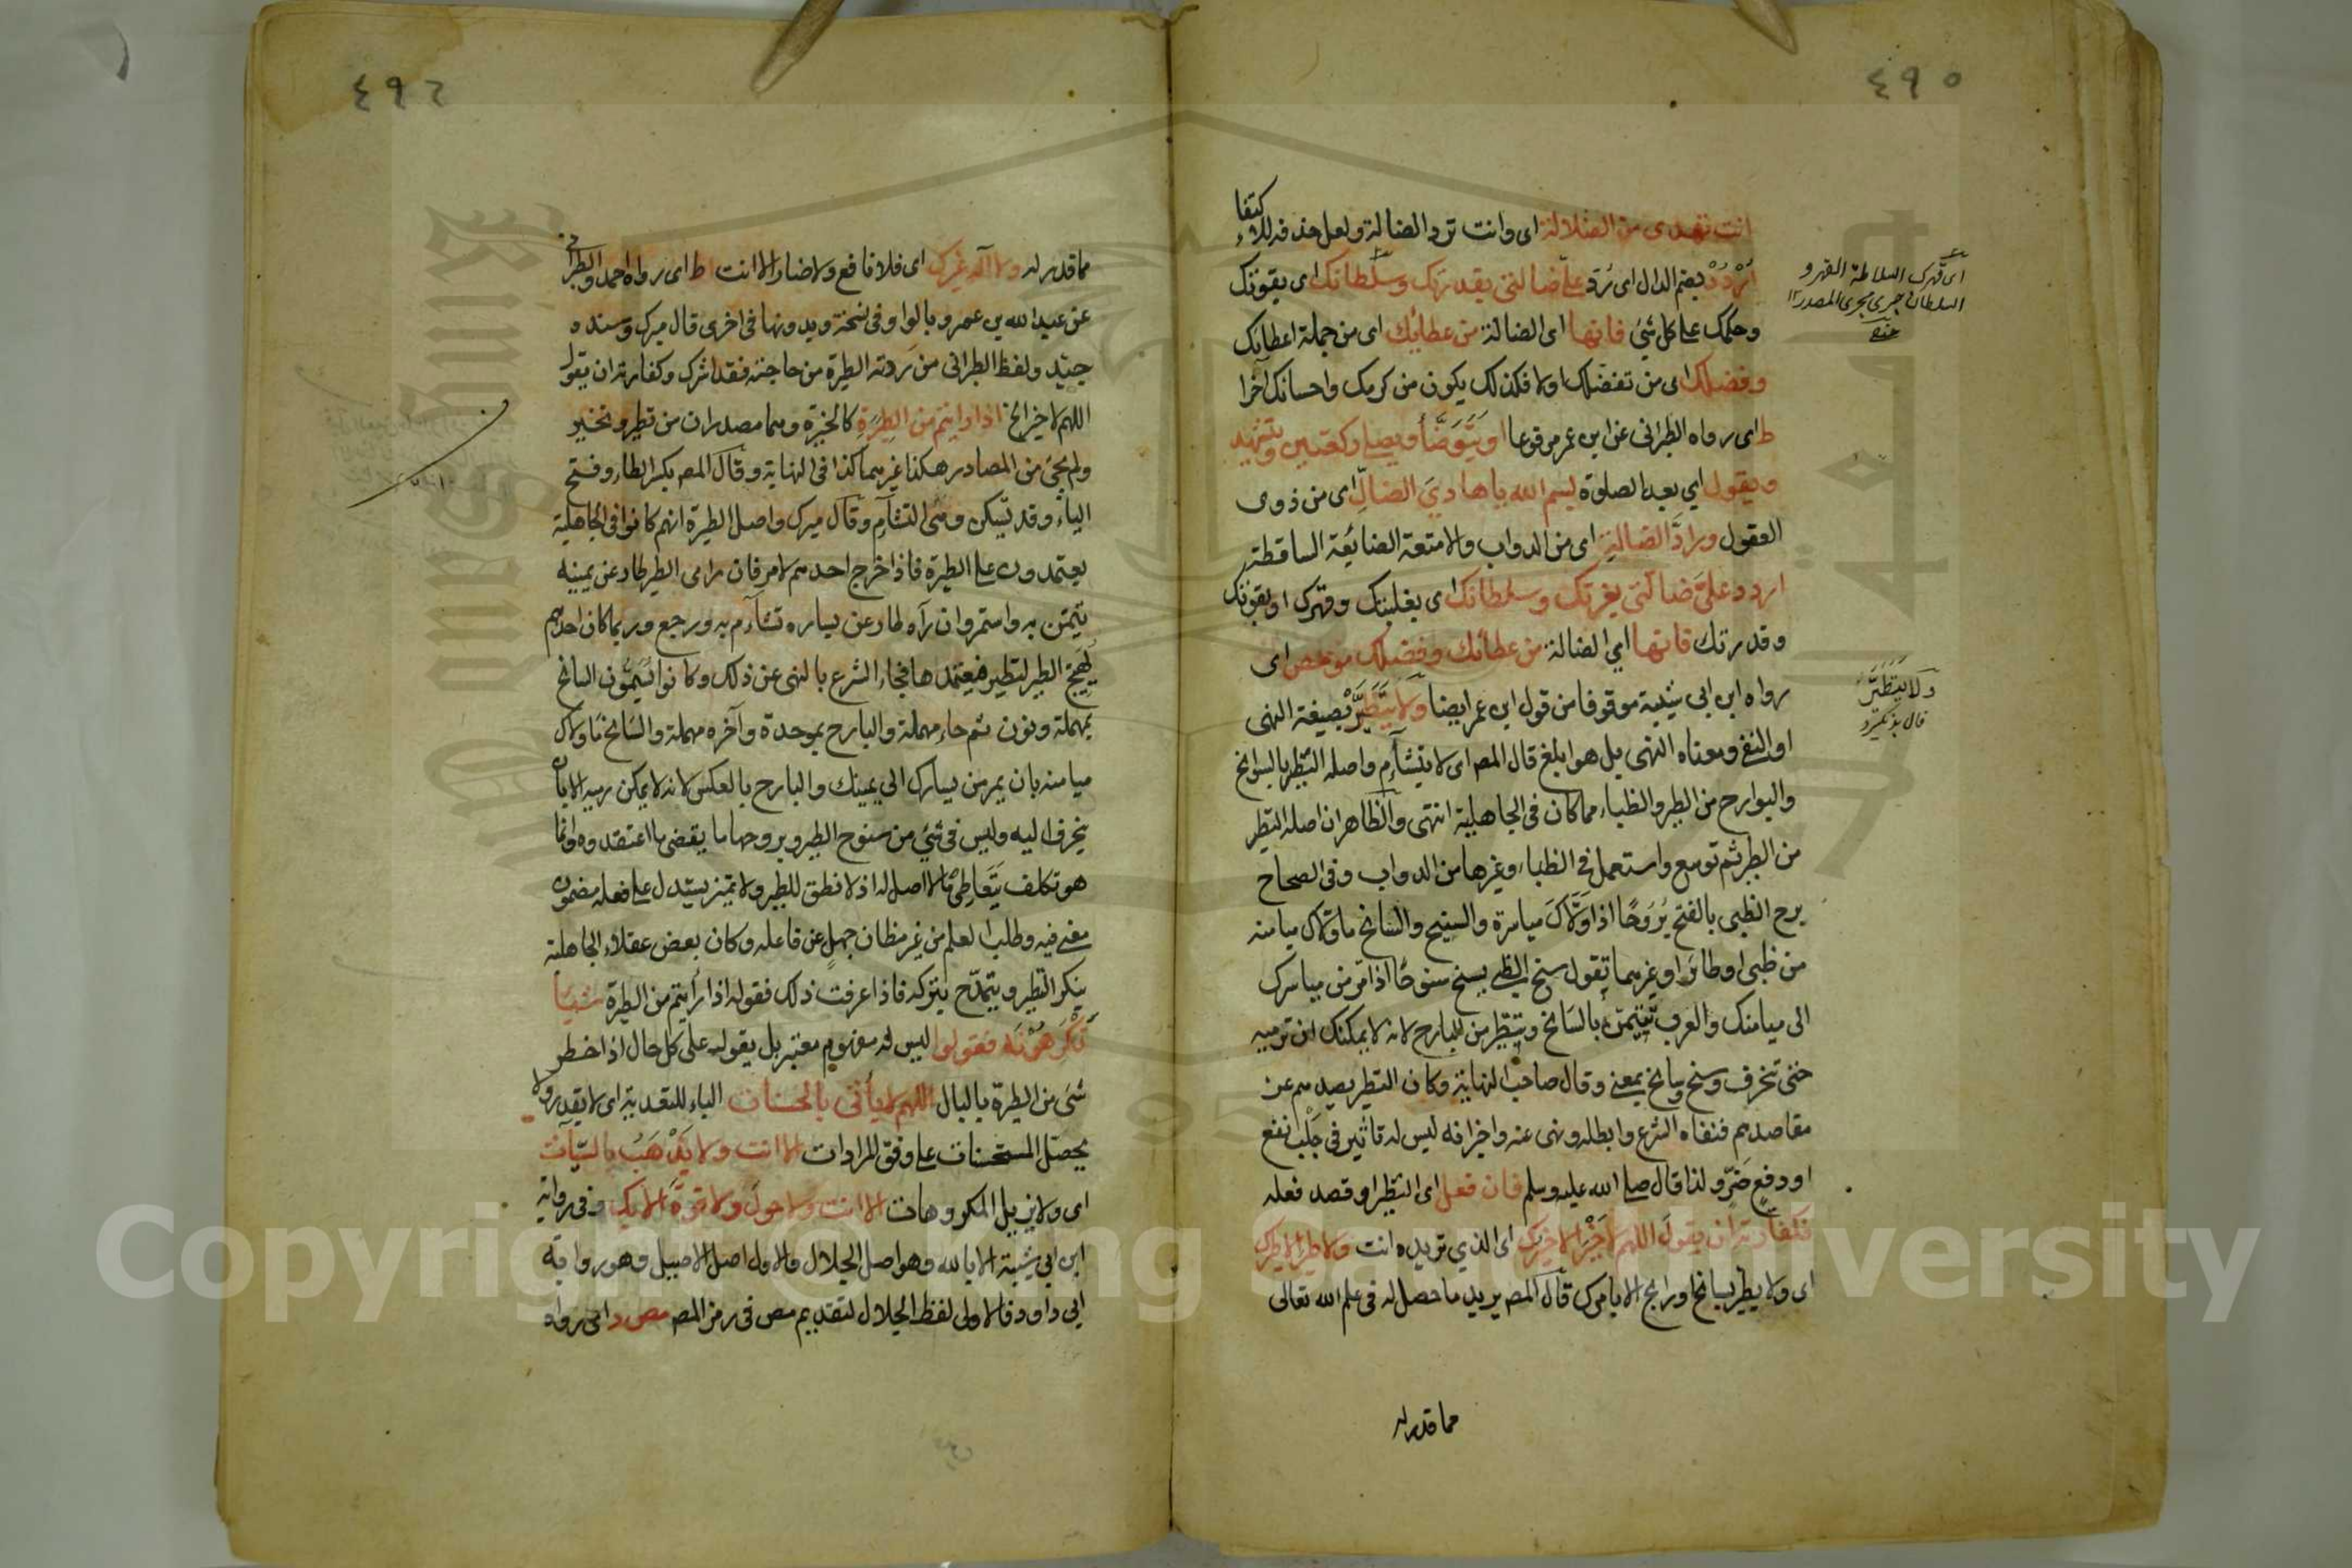 ٤٩٥
انت تهدى من الضلالة اى وانت ترد الضالة ولعل حذفه للاكتفاء
اُرْدُدْ بضم الدال اى رُدّ علىّ ضالتى بقدرتك وسلطانك اى بقوتك
وحكمك على كل شئ فانها اى الضالة من عطائك اى من جملة اعطائك
وفضلك اى من تفضلك اولا فكذلك يكون من كرمك واحسانك آخرا
ط اى رواه الطبرانى عن ابن عمر مرفوعا او يَتَوَضَّأُ ويصلى ركعتين ويتشهد
ويقول اي بعد الصلوة بسم الله يا هاديَ الضالّ اى من ذوى
العقول ورادَّ الضالة اى من الدواب والامتعة الضائعة الساقطة
اردد علىَّ ضالّتى بعزتك وسلطانك اى بغلبتك وقهرك او بقوتك
وقدرتك فانها اي الضالة من عطائك وفضلك مو مص اى
رواه ابن ابى شيبة موقوفا من قول ابن عمر ايضا ولا يَتَطَيَّرْ بصيغة النهى
او النفى ومعناه النهى بل هو ابلغ قال المص اى لا يتشآءم واصله التطير بالسوانح
والبوارح من الطير والظباء مما كان فى الجاهلية انتهى والظاهر ان اصله التطير
من الطير ثم توسع واستعمل فى الظباء وغيرها من الدواب وفى الصحاح
برح الظبى بالفتح بُرُوحًا اذا وَلَّاكَ مياسرة والسنيح والسانح ما ولاك ميامنه
من ظبى او طائر او غيرهما تقول سنح الظبى يسنح سنوحًا اذا مر من مياسرك
الى ميامنك والعرب تتيمن بالسانح وتتطير من البارح لانه لا يمكنك ان ترميه
حتى تنحرف وسنح وسانح بمعنى وقال صاحب النهاية وكان التطير يصدهم عن
مقاصدهم فنفاه الشرع وابطله ونهى عنه واخبر انه ليس له تاثير فى جَلْب نفع
او دفع ضرّ ولذا قال صلى الله عليه وسلم فان فعل اى التطير او قصد فعله
فكفارته ان يقول اللهم لا خَيْرَ الا خيرك اى الذي تريده انت ولا طير الا طيرك
اى ولا يطير سانح او رابح الا بامرك قال المص يريد ما حصل له فى علم الله تعالى
مما قدر له
اى قهرك السلاطة القهر و
السلطان جرى مجرى المصدر ١٢
ولا يَتَطَيَّرُ
٤٩٦
مما قدر له ولا اله غيرك اى فلا نافع ولا ضار الا انت ط اى رواه احمد والطبرانى
عن عبد الله بن عمرو بالواو وفى نسخة وبدونها فى اخرى قال ميرك وسنده
جيّد ولفظ الطبرانى من ردته الطيرة من حاجته فقد اشرك وكفارته ان يقول
اللهم لا خير الخ اذا رايتم من الطِيَرَةِ كالخيرة وهما مصدران من تطير وتخير
ولم يجئ من المصادر هكذا غيرهما كذا فى النهاية وقال المص بكسر الطاء وفتح
الياء وقد تسكن وهى التشآءم وقال ميرك واصل الطيرة انهم كانوا فى الجاهلية
يعتمدون على الطيرة فاذا خرج احدهم لامر فان راى الطير طار عن يمينه
تيمّن به واستمر وان رآه طار عن يساره تشآءم به ورجع وربما كان احدهم
يُهَيّج الطير لتطير فيعتمدها فجاء الشرع بالنهى عن ذلك وكانوا يسمّون السانح
بمهملة ونون ثم حاء مهملة والبارح بموحدة وآخره مهملة والسانح ما ولاك
ميامنه بان يمر من يسارك الى يمينك والبارح بالعكس لانه لا يمكن رميه الا بان
ينحرف اليه وليس فى شئ من سنوح الطير وبروحها ما يقتضى ما اعتقدوه وانما
هو تكلف بتعاطى ما لا اصل له اذ لا نطق للطير ولا تميز يستدل على فعله مضمون
معنى فيه وطلب العلم من غير مظان جهل عن فاعله وكان بعض عقلاء الجاهلية
ينكر التطير ويتمدّح بتركه فاذا عرفت ذلك فقوله اذا رأيتم من الطيرة شيئا
تَكْرَهُونَه فقولوا ليس له مفهوم معتبر بل يقوله على كل حال اذا خطر
شئ من الطيرة بالبال اللهم لا يأتى بالحسنات الباء للتعدية اى لا يقدر ولا
يحصل المستحسنات على وفق المرادات الا انت ولا يَذْهَبُ بالسّيّآت
اى ولا يزيل المكروهات الا انت ولا حول ولا قوة الا بك وفى رواية
ابن ابى شيبة الا بالله وهو اصل الجلال والاول اصل الاصيل وهو رواية
ابى داود فالاولى لفظ الجلال لتقديم مص فى رمز المص مص د اى رواه